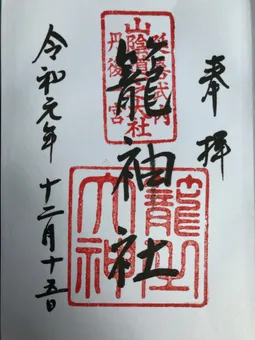 奉拝
延喜式内
山陰道一大社
丹後一宮
籠神社
籠之大神
令和元年 十二月十五日